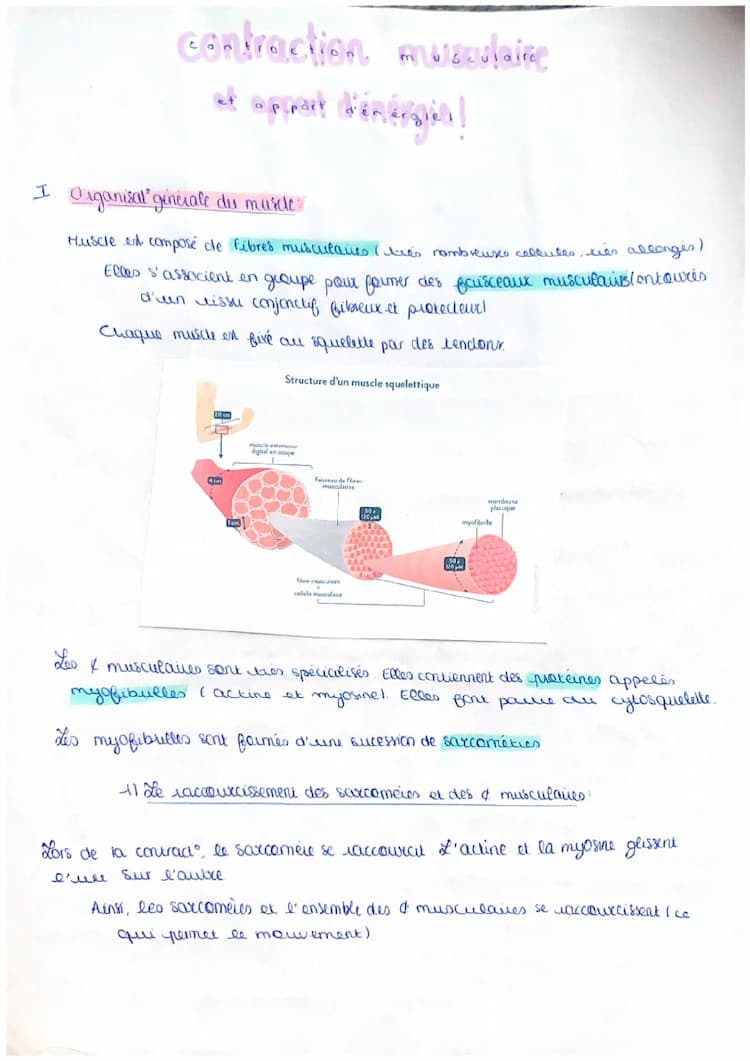 contraction musculaire
et apport d'énérgie!
I Organisat° générale du muscle:
Muscle est composé de fibres musculaires (très nombreuses cellules, très allongés)
Elles s'associent en groupe pour former des faisceaux musculaires (entourés
d'un tissu conjonctif fibreux et protecteur)
Chaque muscle est fixé au squelette par des tendons.
Structure d'un muscle squelettique
20 cm
muscle extenseur
digital en coupe
4 cm
faisceau de fibres
musculaires
1 cm
50 à
120 µM
membrane
plasmique
myofibrille
50 à
120 µM
fibre musculaire
=
cellule musculaire
Les ¢ musculaires sont très spécialisés. Elles contiennent des protéines appelés
myofibrilles (actine et myosine). Elles font partie du cytosquelette.
Les myofibrilles sont formés d'une sucession de sarcomères
1) Le raccourcissement des sarcomères et des ¢ musculaires:
Lors de la contract°, le sarcomère se raccourcit. L'actine et la myosine glissent
l'une sur l'autre
Ainsi, les sarcomères et l'ensemble des ¢ musculaires se raccourcissent (ce
qui permet le mouvement)